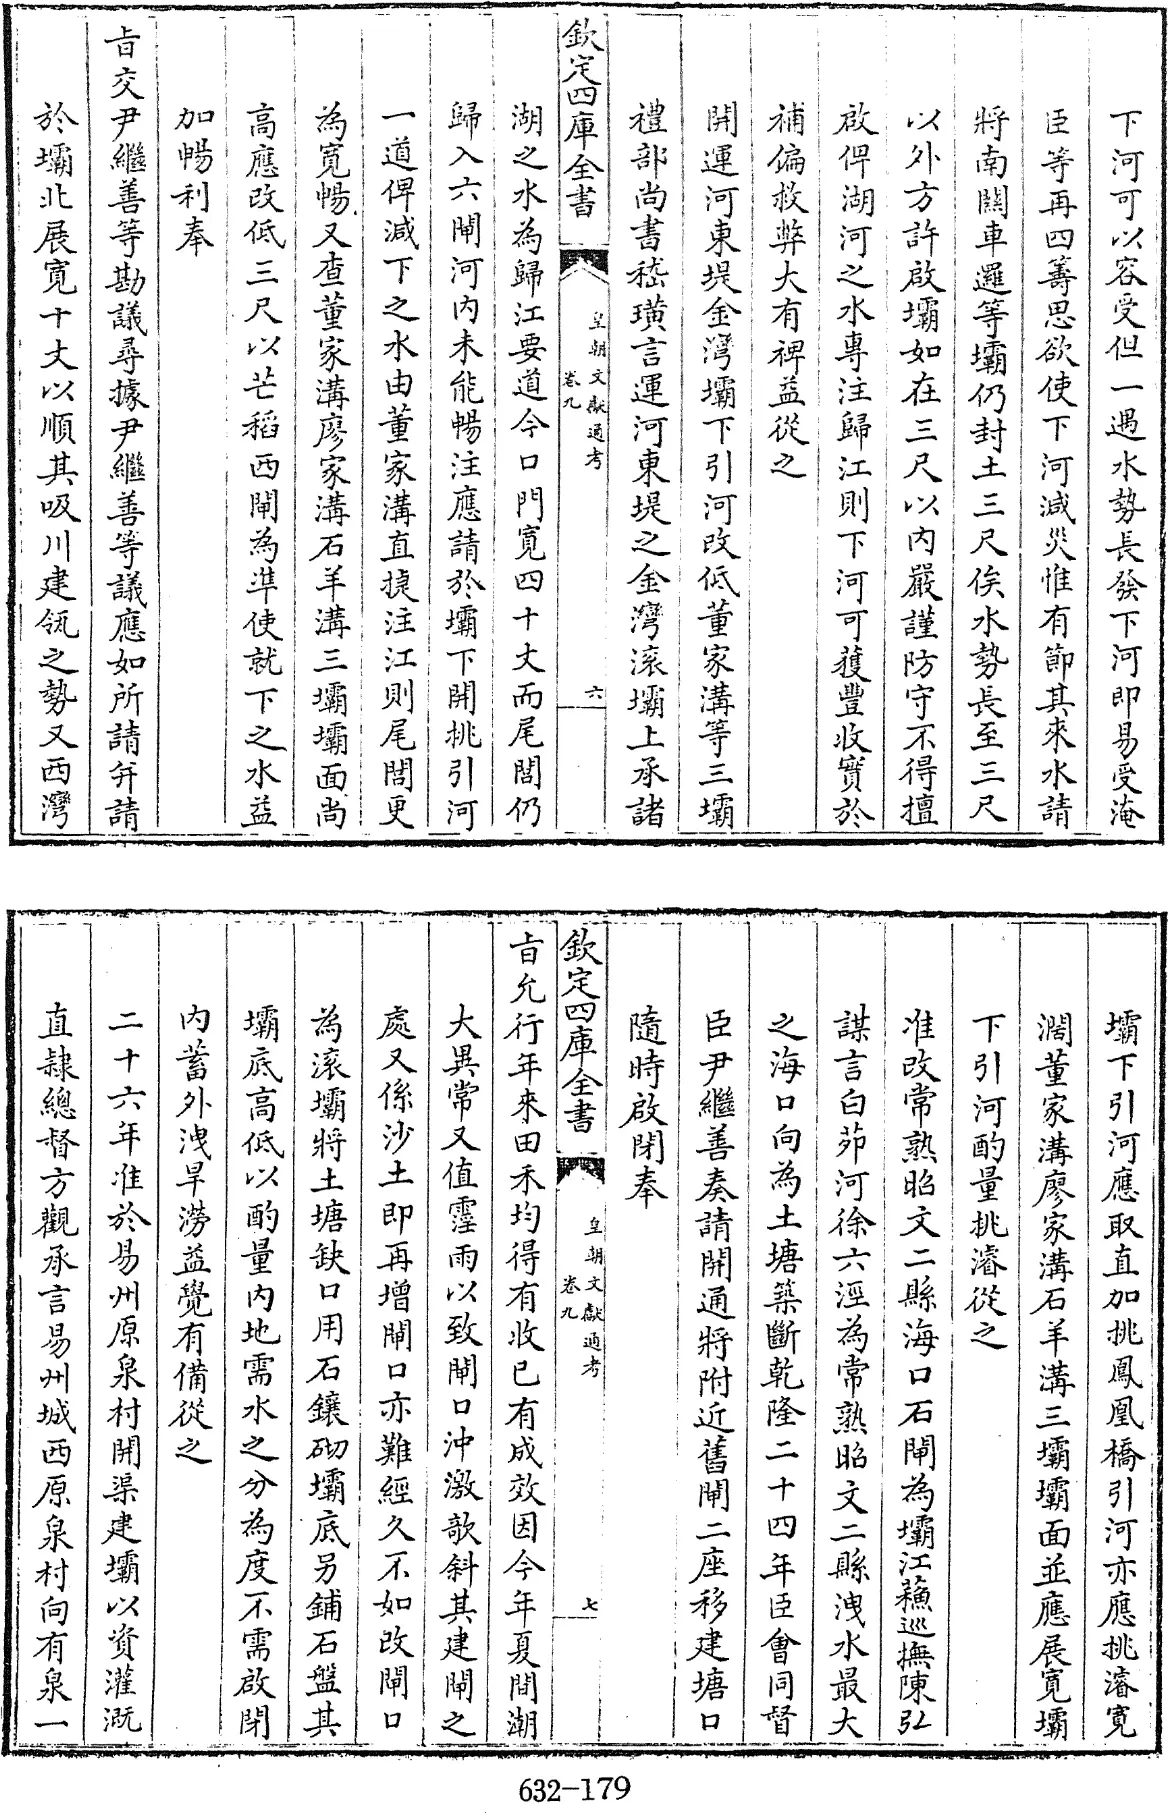 下河可以容受但一遇水勢長發下河即易受淹
臣等再四籌思欲使下河減災惟有節其來水請
將南關車邏等壩仍封土三尺俟水勢長至三尺
以外方許啟壩如在三尺以內嚴謹防守不得擅
啟俾湖河之水專注歸江則下河可獲豐收實於
補偏救弊大有裨益從之
開運河東堤金灣壩下引河改低董家溝等三壩
禮部尚書嵇璜言運河東堤之金灣滚壩上承諸
欽定四庫全書
皇朝文獻通考
卷九
六
湖之水為歸江要道今口門寬四十丈而尾閭仍
歸入六閘河内未能暢注應請於壩下開挑引河
一道俾減下之水由董家溝直捷注江則尾閭更
為寬暢又查董家溝廖家溝石羊溝三壩壩面尚
高應改低三尺以芒稻西閘為準使就下之水益
加暢利奉
旨交尹繼善等勘議尋據尹繼善等議應如所請并請
於壩北展寬十丈以順其吸川建瓴之勢又西灣
壩下引河應取直加挑鳳凰橋引河亦應挑濬寬
濶董家溝廖家溝石羊溝三壩壩面並應展寬壩
下引河酌量挑濬從之
准改常熟昭文二縣海口石閘為壩江蘓巡撫陳弘
謀言白茆河徐六涇為常熟昭文二縣洩水最大
之海口向為土塘築斷乾隆二十四年臣會同督
臣尹繼善奏請開通將附近舊閘二座移建塘口
隨時啟閉奉
欽定四庫全書
皇朝文獻通考
卷九
七
旨允行年來田禾均得有收已有成效因今年夏間潮
大異常又值霪雨以致閘口沖激欹斜其建閘之
處又係沙土即再增閘口亦難經久不如改閘口
為滚壩將土塘缺口用石鑲砌壩底另鋪石盤其
壩底高低以酌量內地需水之分為度不需啟閉
内蓄外洩旱澇益覺有備從之
二十六年准於易州原泉村開渠建壩以資灌溉
直隷總督方觀承言易州城西原泉村向有泉一
632-179